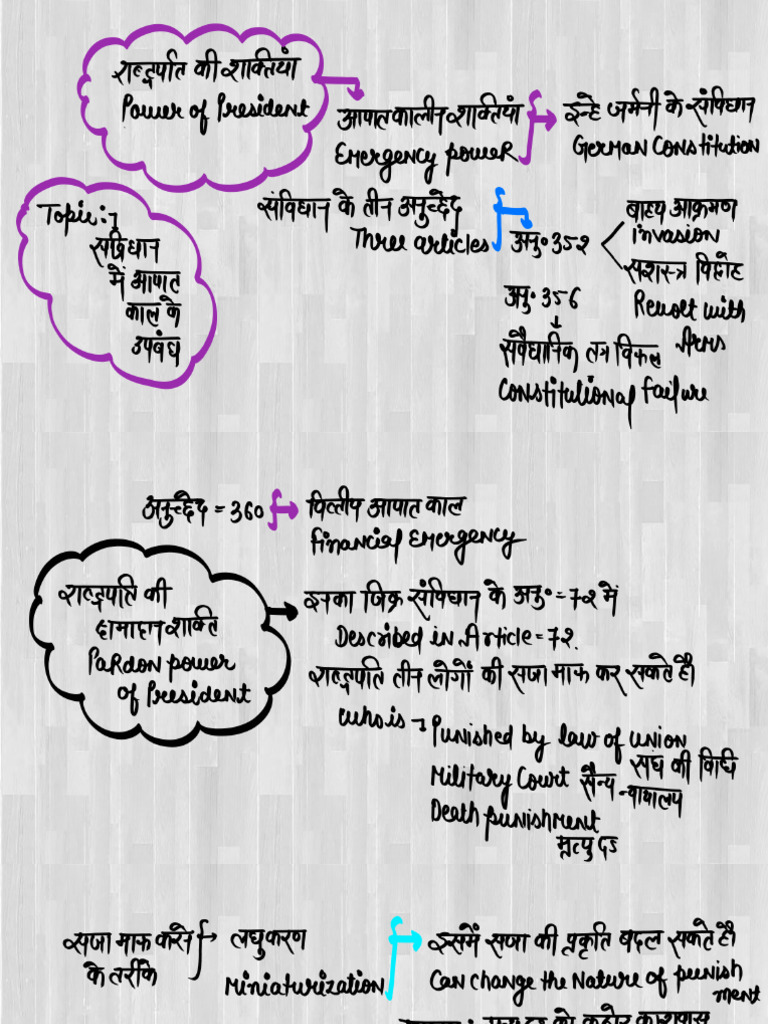 राष्ट्रपति की शक्तियां
Power of President
आपातकालीन शक्तियां
Emergency power
इन्हे जर्मनी के संविधान
German Constitution
Topic:-
संविधान
में आपात
काल के
उपबंध
संविधान के तीन अनुच्छेद
Three articles
अनु० 352
बाह्य आक्रमण
Invasion
सशस्त्र विद्रोह
Revolt with
Arms
अनु० 356
संवैधानिक तंत्र विफल
Constitutional failure
अनुच्छेद = 360
वित्तीय आपात काल
Financial Emergency
राष्ट्रपति की
क्षमादान शक्ति
Pardon power
of President
इसका जिक्र संविधान के अनु० = 72 में
Described in Article = 72.
राष्ट्रपति तीन लोगों की सजा माफ कर सकते है।
who is
Punished by law of union
संघ की विधि
Military Court सैन्य न्यायालय
Death punishment
मृत्यु दंड
सजा माफ करने
के तरीके
लघुकरण
Miniaturization
इसमें सजा की प्रकृति बदल सकते है।
Can change the Nature of punish
ment